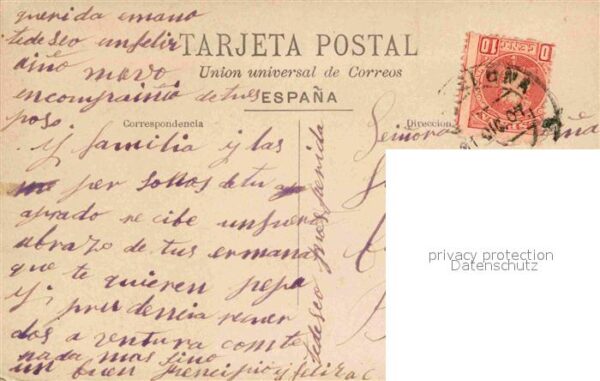 querida emano
tedeseo unfelis
año nuevo
encompraiñia de tues
poso
TARJETA POSTAL
Union universal de Correos
ESPAÑA
Correspondencia
Dirección
y familia y las
me per sonos de tu
aprado re cibe un fuere
abrazo de tus ermanas
que te quieren pepa
y prudencia recuer
dos a ventura com te
nada mas sino
un buen prencipio y feliz ac
tedeseo prosperida
Señora
10 CENTS 10
privacy protection
Datenschutz